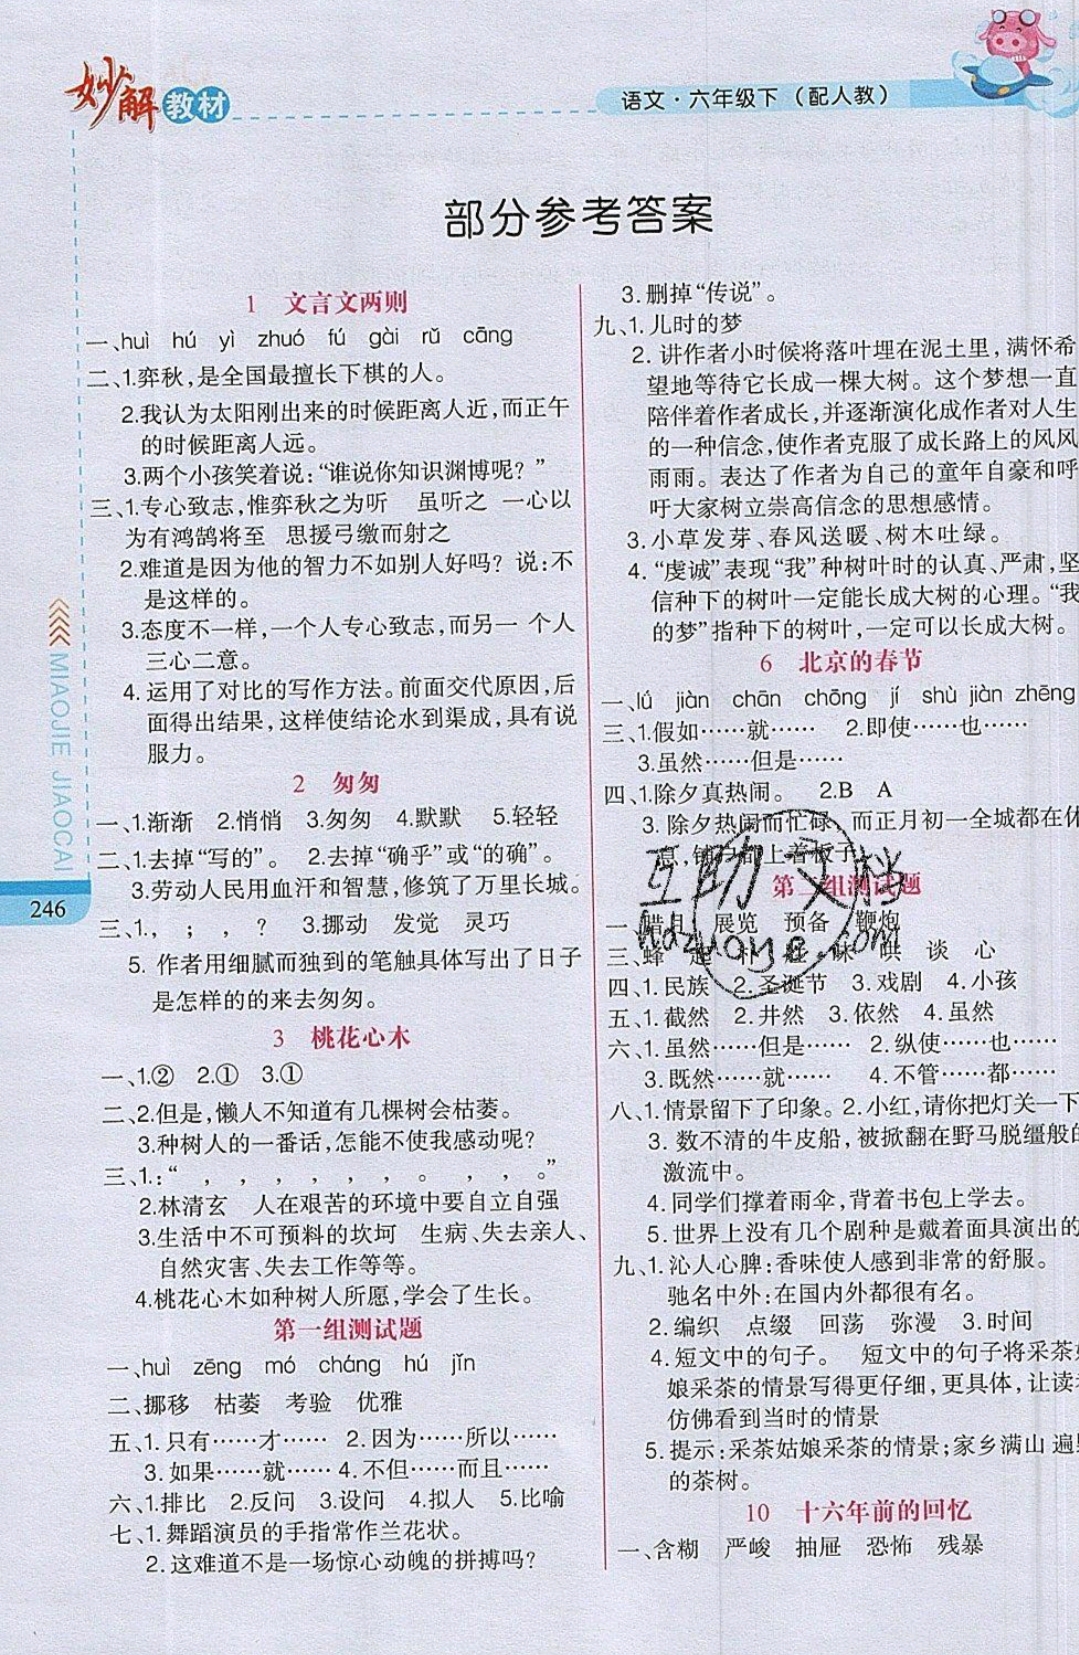 妙解教材
语文·六年级下（配人教）
部分参考答案
1 文言文两则
一、huì hú yì zhuó fú gài rǔ cāng
二、1.弈秋,是全国最擅长下棋的人。
2.我认为太阳刚出来的时候距离人近,而正午
的时候距离人远。
3.两个小孩笑着说:“谁说你知识渊博呢？”
三、1.专心致志,惟弈秋之为听 虽听之 一心以
为有鸿鹄将至 思援弓缴而射之
2.难道是因为他的智力不如别人好吗？说:不
是这样的。
3.态度不一样,一个人专心致志,而另一 个人
三心二意。
4. 运用了对比的写作方法。前面交代原因,后
面得出结果,这样使结论水到渠成,具有说
服力。
2 匆匆
一、1.渐渐 2.悄悄 3.匆匆 4.默默 5.轻轻
二、1.去掉“写的”。 2.去掉“确乎”或“的确”。
3.劳动人民用血汗和智慧,修筑了万里长城。
三、1.， ； ， ？ 3.挪动 发觉 灵巧
5. 作者用细腻而独到的笔触具体写出了日子
是怎样的的来去匆匆。
3 桃花心木
一、1.② 2.① 3.①
二、2.但是,懒人不知道有几棵树会枯萎。
3.种树人的一番话,怎能不使我感动呢？
三、1.:“ ， ， ， ， ， 。 ， ， ， 。”
2.林清玄 人在艰苦的环境中要自立自强
3.生活中不可预料的坎坷 生病、失去亲人、
自然灾害、失去工作等等。
4.桃花心木如种树人所愿,学会了生长。
第一组测试题
一、huì zēng mó cháng hú jǐn
二、挪移 枯萎 考验 优雅
五、1.只有……才…… 2.因为……所以……
3.如果……就…… 4.不但……而且……
六、1.排比 2.反问 3.设问 4.拟人 5.比喻
七、1.舞蹈演员的手指常作兰花状。
2.这难道不是一场惊心动魄的拼搏吗？
3.删掉“传说”。
九、1.儿时的梦
2. 讲作者小时候将落叶埋在泥土里,满怀希
望地等待它长成一棵大树。这个梦想一直
陪伴着作者成长,并逐渐演化成作者对人生
的一种信念,使作者克服了成长路上的风风
雨雨。表达了作者为自己的童年自豪和呼
吁大家树立崇高信念的思想感情。
3. 小草发芽、春风送暖、树木吐绿。
4. “虔诚”表现“我”种树叶时的认真、严肃,坚
信种下的树叶一定能长成大树的心理。“我
的梦”指种下的树叶,一定可以长成大树。
6 北京的春节
一、lú jiàn chān chōng jí shù jiàn zhēng
三、1.假如……就…… 2.即使……也……
3.虽然……但是……
四、1.除夕真热闹。 2.B A
3. 除夕热闹而忙碌 而正月初一全城都在休
息,铺户都上着板子
第二组测试题
一、腊月 展览 预备 鞭炮
三、蜂 哄 谈 心
四、1.民族 2.圣诞节 3.戏剧 4.小孩
五、1.截然 2.井然 3.依然 4.虽然
六、1.虽然……但是…… 2.纵使……也……
3.既然……就…… 4.不管……都……
八、1.情景留下了印象。2.小红,请你把灯关一下
3. 数不清的牛皮船,被掀翻在野马脱缰般的
激流中。
4.同学们撑着雨伞,背着书包上学去。
5.世界上没有几个剧种是戴着面具演出的
九、1.沁人心脾:香味使人感到非常的舒服。
驰名中外:在国内外都很有名。
2.编织 点缀 回荡 弥漫 3.时间
4.短文中的句子。 短文中的句子将采茶姑
娘采茶的情景写得更仔细,更具体,让读者
仿佛看到当时的情景
5. 提示:采茶姑娘采茶的情景;家乡满山 遍野
的茶树。
10 十六年前的回忆
一、含糊 严峻 抽屉 恐怖 残暴
MIAOJIE JIAOCAI
246
互助文档
hdzuoye.com